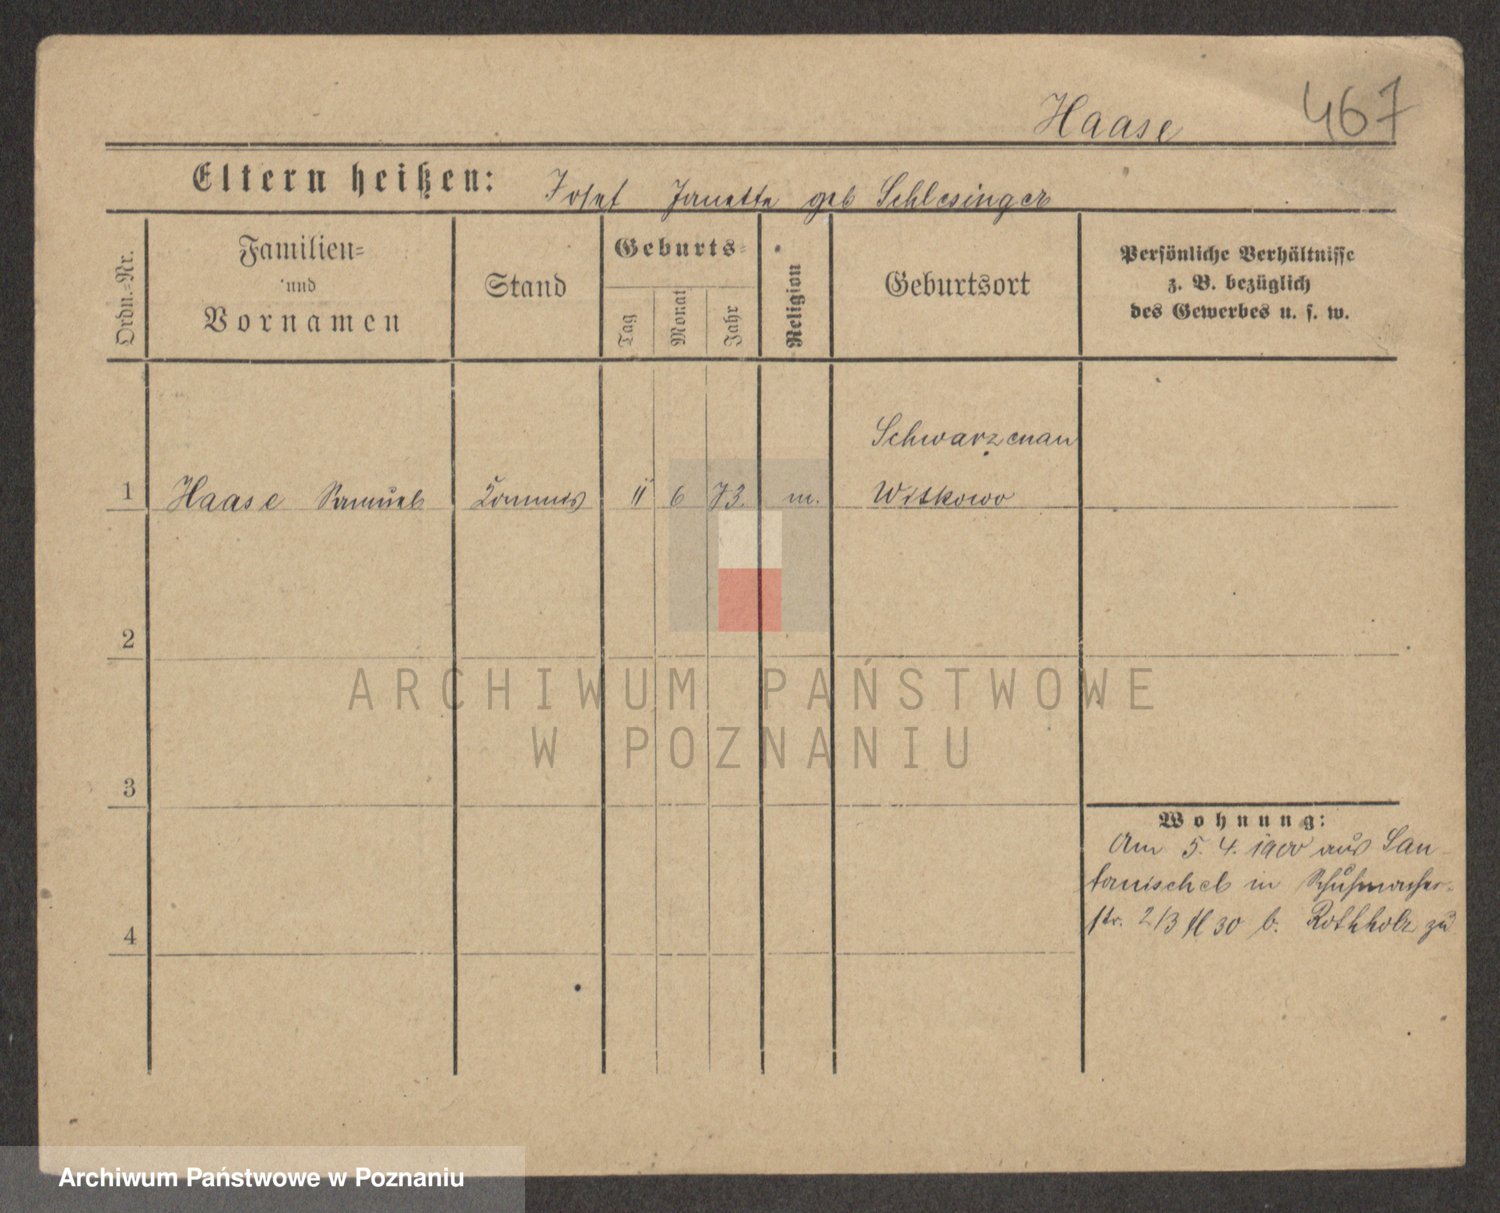 Haase 467
Eltern heißen: Josef Janette geb Schlesinger
Ordn.-Nr.
Familien-
und
Vornamen
Stand
Geburts-
Tag
Monat
Jahr
Religion
Geburtsort
Persönliche Verhältnisse
z. B. bezüglich
des Gewerbes u. s. w.
Schwarzenau
1 Haase Samuel Commis 11 6 73. m. Witkowo
2
3
4
Wohnung:
Am 5. 4. 1900 aus San-
tomischel in Schuhmacher-
str. 2/3 II 30 b. Rothholz zu
ARCHIWUM PAŃSTWOWE
W POZNANIU
Archiwum Państwowe w Poznaniu